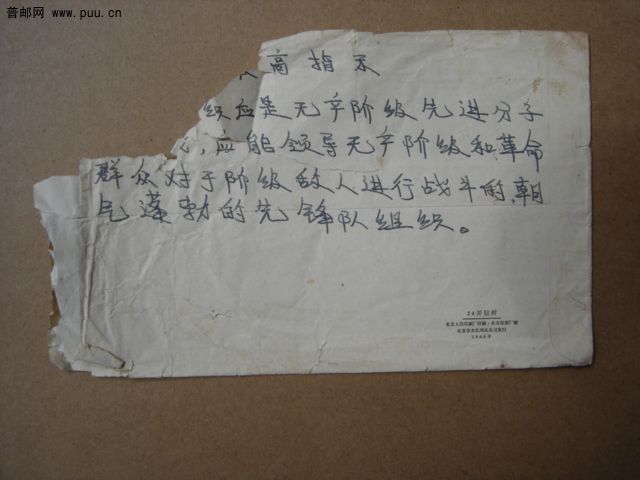 普邮网 www.puu.cn
高指示
织应是无产阶级先进分子
,应能领导无产阶级和革命
群众对于阶级敌人进行战斗的朝
气蓬勃的先锋队组织。
24开信封